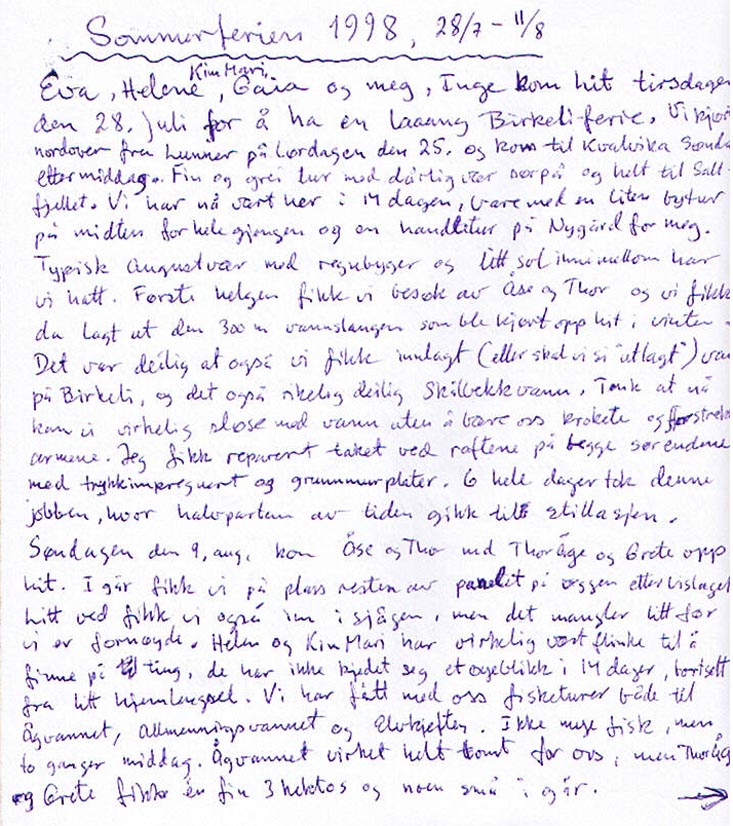 Sommerferien 1998, 28/7 - 11/8
Kim Mari,
Eva, Helene, Gaia og meg, Inge kom hit tirsdagen
den 28. juli for å ha en laaang Birkeli-ferie. Vi kjørte
nordover fra Lunner på lørdagen den 25. og kom til Kvalvika Sønda
ettermiddag. Fin og grei tur med dårlig vær sørpå og helt til Salt-
fjellet. Vi har nå vært her i 14 dagen, bare med en liten bytur
på midten for hele gjengen og en handletur på Nygård for meg.
Typisk augustvær med regnbyger og litt sol innimellom har
vi hatt. Første helgen fikk vi besøk av Åse og Thor og vi fikk
da lagt ut den 300 m vannslangen som ble kjørt opp hit i vinter.
Det var deilig at også vi fikk innlagt (eller skal vi si "utlagt") van
på Birkeli, og det også rikelig deilig Skilbekkvann. Tenk at nå
kan vi virkelig sløse med vann uten å bære oss krokete og forstrekk
armene. Jeg fikk reparert taket ved raftene på begge sørendene
med trykkimpregnert og grunnmurplater. 6 hele dager tok denne
jobben, hvor halvparten av tiden gikk til stillasjen.
Søndagen den 9. aug. kom Åse og Thor med ThorÅge og Grete opp
hit. I går fikk vi på plass resten av panelet på veggen etter vislaget
litt ved fikk vi også inn i sjågen, men det mangler litt før
vi er fornøyde. Helen og Kim Mari har virkelig vært flinke til å
finne på ting, de har ikke kjedet seg et øyeblikk i 14 dager, bortsett
fra litt hjemlengsel. Vi har fått med oss fisketurer både til
Ågvannet, Allmenningsvannet og Elvkjeften. Ikke mye fisk, men
to ganger middag. Ågvannet virket helt tomt for oss, men ThorÅge
og Grete fikk en fin 3 hektos og noen små i går.
→